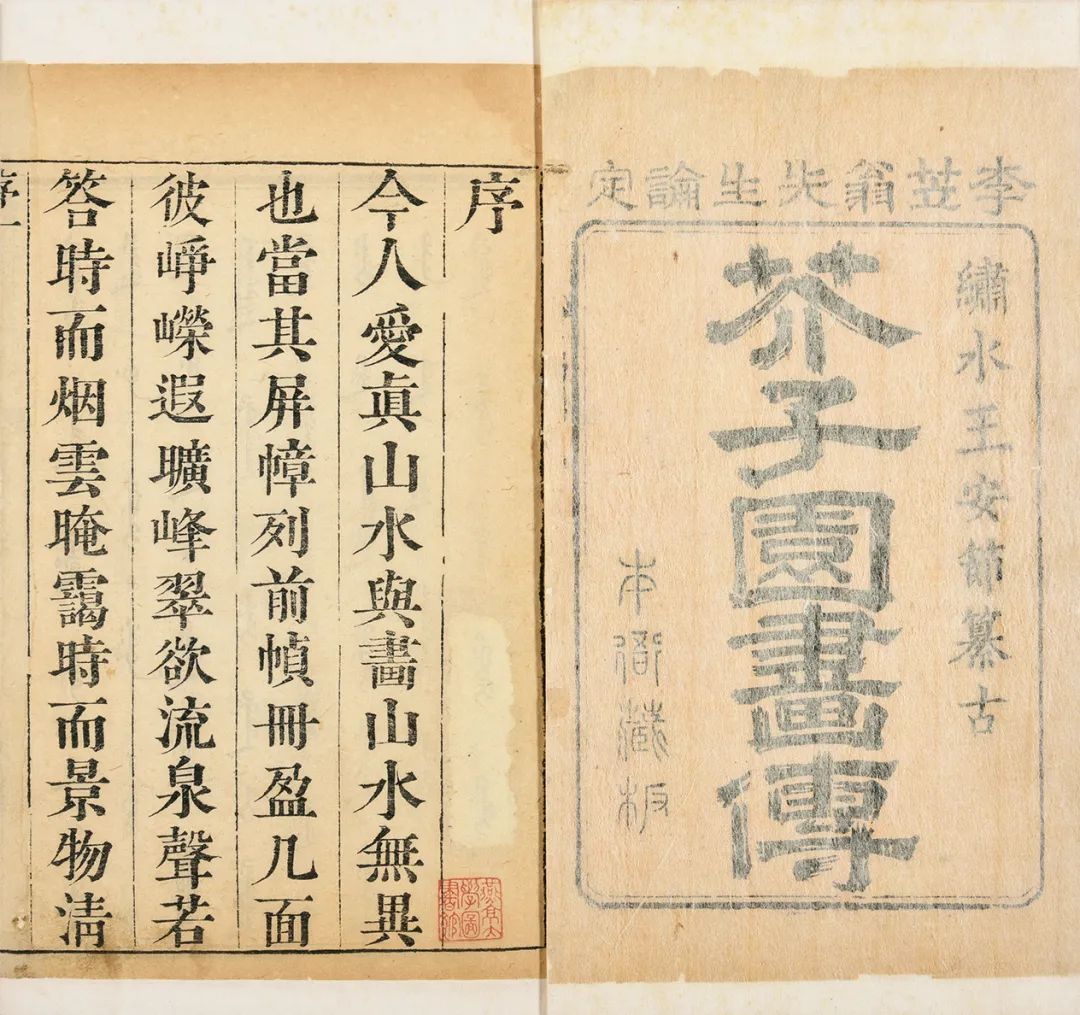 李笠翁先生論定
繡水王安節摹古
芥子園畫傳
本衙藏板
序
今人愛眞山水與畫山水無異
也當其屏幛列前幀冊盈几面
彼崢嶸遐曠峰翠欲流泉聲若
答時而烟雲晻靄時而景物清
燕京大
學圖
書館